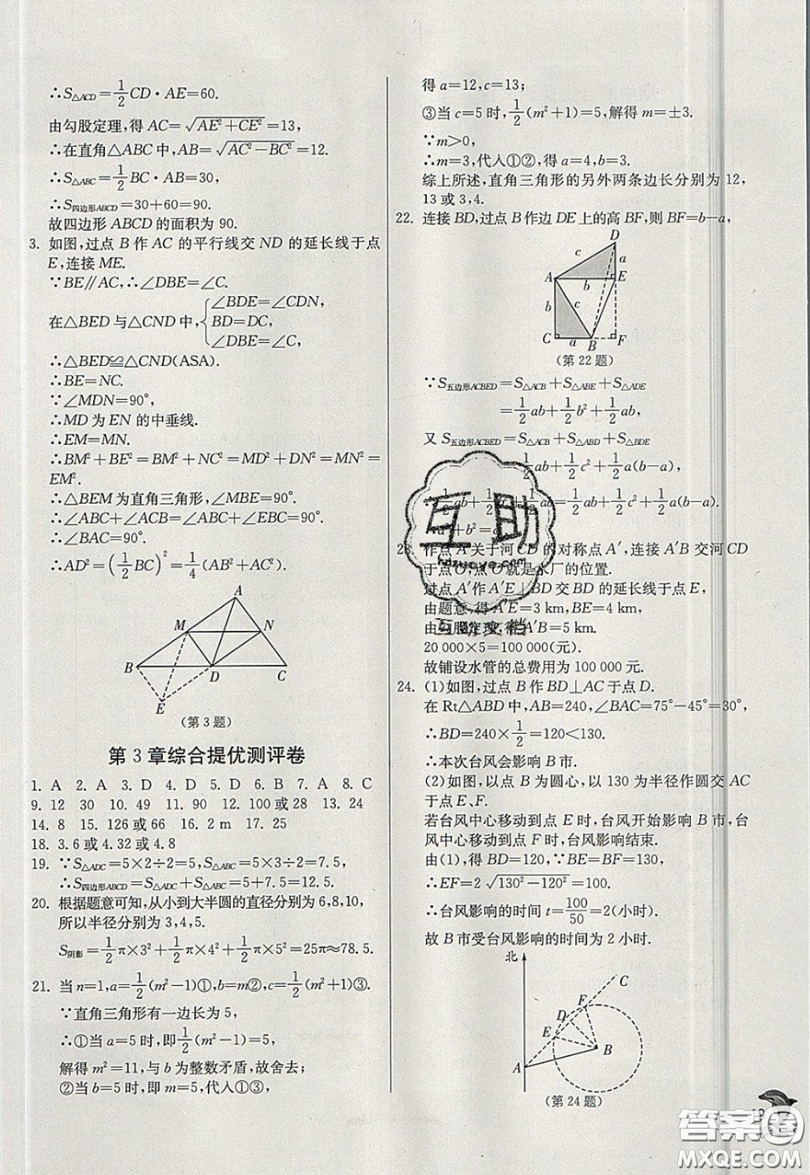 ∴S△ACD=1/2CD·AE=60.
由勾股定理,得 AC=√(AE²+CE²)=13,
∴在直角△ABC 中,AB=√(AC²−BC²)=12.
∴S△ABC=1/2BC·AB=30.
∴S四边形ABCD=30+60=90.
故四边形 ABCD 的面积为 90.
3. 如图,过点 B 作 AC 的平行线交 ND 的延长线于点
E,连接 ME.
∵BE∥AC,∴∠DBE=∠C.
在△BED 与△CND 中,{∠BDE=∠CDN,
BD=DC,
∠DBE=∠C,
∴△BED≌△CND(ASA).
∴BE=NC.
∵∠MDN=90°,
∴MD 为 EN 的中垂线.
∴EM=MN.
∴BM²+BE²=BM²+NC²=MD²+DN²=MN²=
EM².
∴△BEM 为直角三角形,∠MBE=90°.
∴∠ABC+∠ACB=∠ABC+∠EBC=90°.
∴∠BAC=90°.
∴AD²=(1/2BC)²=1/4(AB²+AC²).
A
M
N
B
D
C
E
(第 3 题)
第 3 章综合提优测评卷
1. A 2. A 3. D 4. D 5. D 6. D 7. A 8. C
9. 12 30 10. 49 11. 240 12. 100 或 28 13. 24
14. 8 15. 126 或 66 16. 2 m 17. 25
18. 3.6 或 4.32 或 4.8
19. ∵S△ADC=5×2÷2=5,S△ABC=5×3÷2=7.5,
∴S四边形ABCD=S△ADC+S△ABC=5+7.5=12.5.
20. 根据题意可知,从小到大半圆的直径分别为 6,8,10,
所以半径分别为 3,4,5.
S阴影=1/2π×3²+1/2π×4²+1/2π×5²=25π≈78.5.
21. 当 n=1,a=1/2(m²−1)①,b=m②,c=1/2(m²+1)③.
∵直角三角形有一边长为 5,
∴①当 a=5 时,即1/2(m²−1)=5,
解得 m²=11,与 b 为整数矛盾,故舍去;
②当 b=5 时,即 m=5,代人①③,
得 a=12,c=13;
③当 c=5 时,1/2(m²+1)=5,解得 m=±3.
∵m>0,
∴m=3,代人①②,得 a=4,b=3.
综上所述,直角三角形的另外两条边长分别为 12,
13 或 3,4.
22. 连接 BD,过点 B 作边 DE 上的高 BF,则 BF=b−a,
D
c
a
A
b
E
b
c
C
a
B
F
(第 22 题)
∵S五边形ACBED=S△ACB+S△ABE+S△ADE
=1/2ab+1/2b²+1/2ab,
又 S五边形ACBED=S△ACB+S△ABD+S△BDE
=1/2ab+1/2c²+1/2a(b−a),
∴a²+b²=c²
23. 作点 A 关于河 CD 的对称点 A′,连接 A′B 交河 CD
于点 O,点 O 就是水厂的位置.
过点 A′作 A′E⊥BD 交 BD 的延长线于点 E,
由题意,得 A′E=3 km,BE=4 km,
由勾股定理,得 A′B=5 km.
20 000×5=100 000(元).
故铺设水管的总费用为 100 000 元.
24. (1)如图,过点 B 作 BD⊥AC 于点 D.
在 Rt△ABD 中,AB=240,∠BAC=75°−45°=30°,
∴BD=240×1/2=120<130.
∴本次台风会影响 B 市.
(2)如图,以点 B 为圆心,以 130 为半径作圆交 AC
于点 E、F.
若台风中心移动到点 E 时,台风开始影响 B 市,台
风中心移动到点 F 时,台风影响结束.
由(1),得 BD=120,∵BE=BF=130,
∴EF=2√(130²−120²)=100.
∴台风影响的时间 t=100/50=2(小时).
故 B 市受台风影响的时间为 2 小时.
北
C
F
D
E
B
A
(第 24 题)
互助
hdzuoye.com
互助文档
答案圈
MXQE.COM